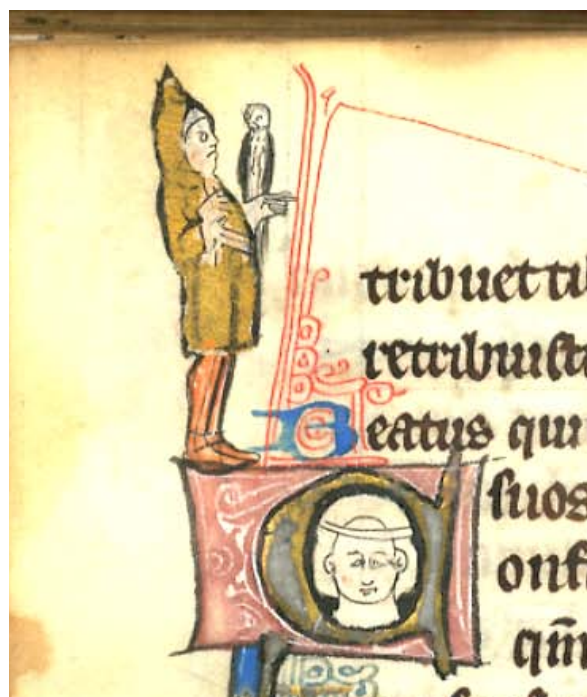 tribuet ti
retribuiſti
Beatus qui
ſuos
Confi
qm̄